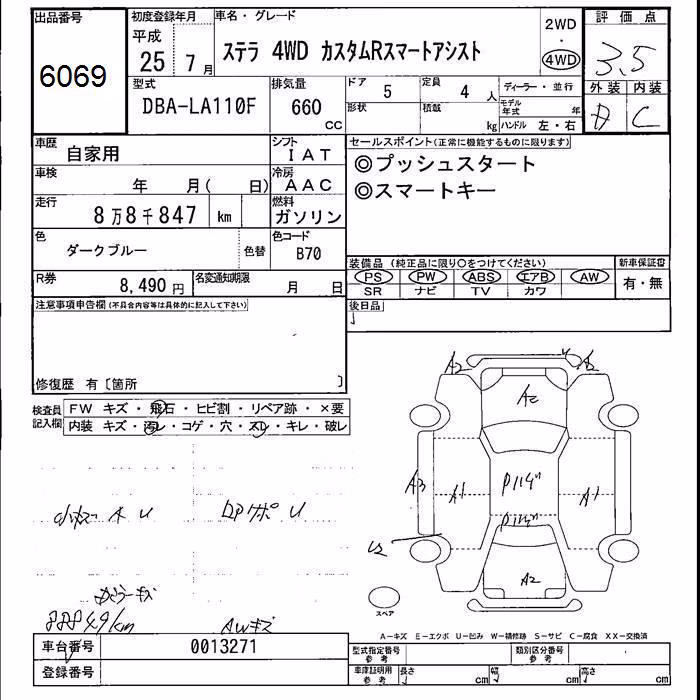 出品番号
6069
初度登録年月
平成
25 7月
車名・グレード
ステラ 4WD カスタムRスマートアシスト
2WD
・
4WD
評価点
3.5
外装 内装
C
型式
DBA-LA110F
排気量
660
CC
ドア 5
形状
定員 4 人
積載 kg
ディーラー・並行
モデル年式 年
ハンドル 左・右
車歴
自家用
シフト
IAT
車検
年 月( 日)
冷房
AAC
走行
8万8千847 km
燃料
ガソリン
色
ダークブルー
色替
色コード
B70
R券
8,490円
名変通知期限
月 日
セールスポイント(正常に機能するものに限ります)
◎プッシュスタート
◎スマートキー
装備品(純正品に限り○をつけてください)
PS PW ABS エアB AW
SR ナビ TV カワ
新車保証書
有・無
後日品
注意事項申告欄(不具合内容等は具体的に記入して下さい)
修復歴 有〔箇所 〕
検査員記入欄
FW キズ・飛石・ヒビ割・リペア跡・×要
内装 キズ・汚レ・コゲ・穴・スレ・キレ・破レ
A2
A2
A3
A1
P
A1
P
A2
スペア
AWキズ
A-キズ E-エクボ U-凹み W-補修跡 S-サビ C-腐食 XX-交換済
車台番号
0013271
登録番号
型式指定番号
参考
類別区分番号
参考
車庫証明用
参考
長さ cm
幅 cm
高さ cm